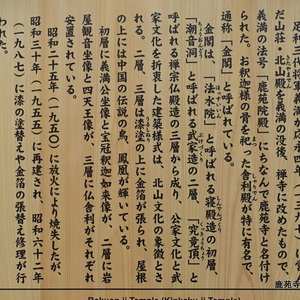 足利三代将軍義満が
だ山荘、北山殿を義満の没後、禅寺に改めたもので、
義満の法号「鹿苑院殿」にちなんで鹿苑寺と名付け
られた。お釈迦様の骨を祀った舎利殿が特に有名で、
通称「金閣」と呼ばれている。
金閣は、「法水院」と呼ばれる寝殿造の初層、
「潮音洞」と呼ばれる武家造の二層、「究竟頂」と
呼ばれる禅宗仏殿造の三層から成り、公家文化と武
家文化を折衷した建築様式は、北山文化の象徴とさ
れる。二層、三層は漆塗の上に金箔が張られ、屋根
の上には中国の伝説の鳥、鳳凰が輝いている。
初層に義満公坐像と宝冠釈迦如来像が、二層に岩
屋観音坐像と四天王像が、三層に仏舎利がそれぞれ
安置されている。
昭和二十五年(一九五〇)に放火により焼失したが、
昭和三十年(一九五五)に再建され、昭和六十二年
(一九八七)に漆の塗替えや金箔の張替え修理が行
われた。
鹿苑寺
Rokuon-ji Temple (Kinkaku-ji Temple)